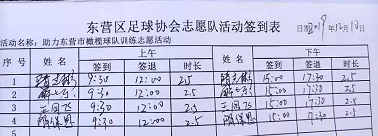 东营区足球协会志愿队活动签到表
日期2019年12月12日
活动名称：助力东营市橄榄球队训练志愿活动
上午 下午
序号 姓名 签到 签退 时长 姓名 签到 签退 时长
1 9:30 12:00 2.5 15:00 17:30 2.5
2 9:30 12:00 2.5 15:00 17:30 2.5
3 王国飞 9:30 12:00 2.5 王国飞 15:00 17:30 2.5
4 隋保恩 9:30 12:00 2.5 隋保恩 15:00 17:30 2.5
5